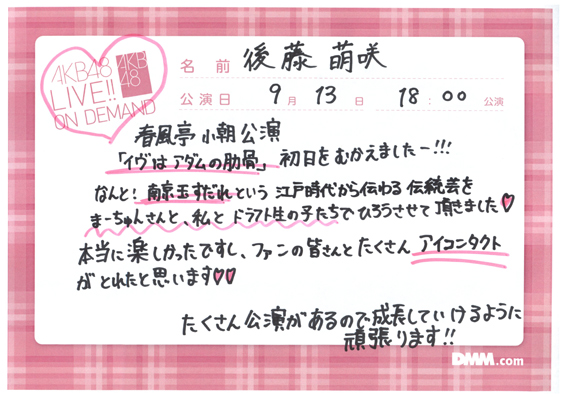 AKB48
LIVE!!
ON DEMAND
AKB
48
名前 後藤 萌咲
公演日 9月 13日 18:00 公演
春風亭 小朝 公演
「イヴは アダムの肋骨」 初日を むかえましたー!!!
なんと! 南京玉すだれ という 江戸時代から伝わる 伝統芸を
まーちゅんさんと、私と ドラフト生の子たちで ひろうさせて 頂きました♡
本当に 楽しかったですし、ファンの皆さんと たくさん アイコンタクト
がとれたと思います♡♡
たくさん 公演があるので 成長していけるように
頑張ります!!
DMM.com